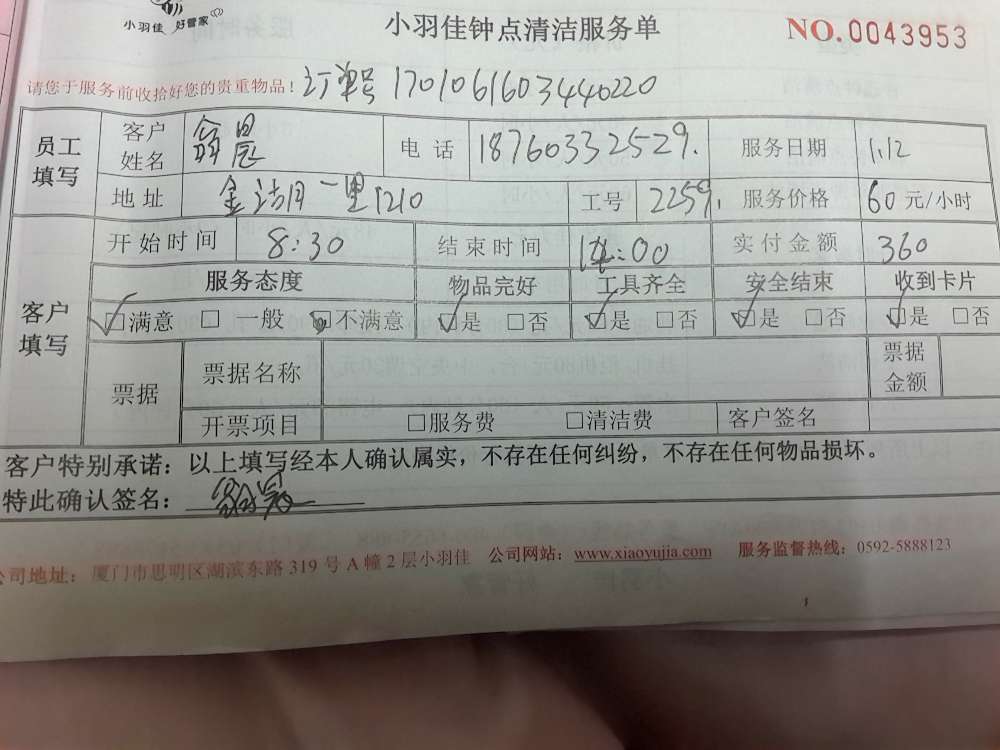 小羽佳 好管家
小羽佳钟点清洁服务单
NO.0043953
请您于服务前收拾好您的贵重物品！订单号 1701061603440220
员工填写 客户姓名 翁 电话 18760332529. 服务日期 1.12
地址 金 一里1210 工号 2259. 服务价格 60元/小时
客户填写 开始时间 8:30 结束时间 14:00 实付金额 360
服务态度 物品完好 工具齐全 安全结束 收到卡片
☑满意 □一般 □不满意 ☑是 □否 ☑是 □否 ☑是 □否 ☑是 □否
票据 票据名称 票据金额
开票项目 □服务费 □清洁费 客户签名
客户特别承诺：以上填写经本人确认属实，不存在任何纠纷，不存在任何物品损坏。
特此确认签名：
公司地址：厦门市思明区湖滨东路 319 号 A 幢 2 层小羽佳 公司网站：www.xiaoyujia.com 服务监督热线：0592-5888123